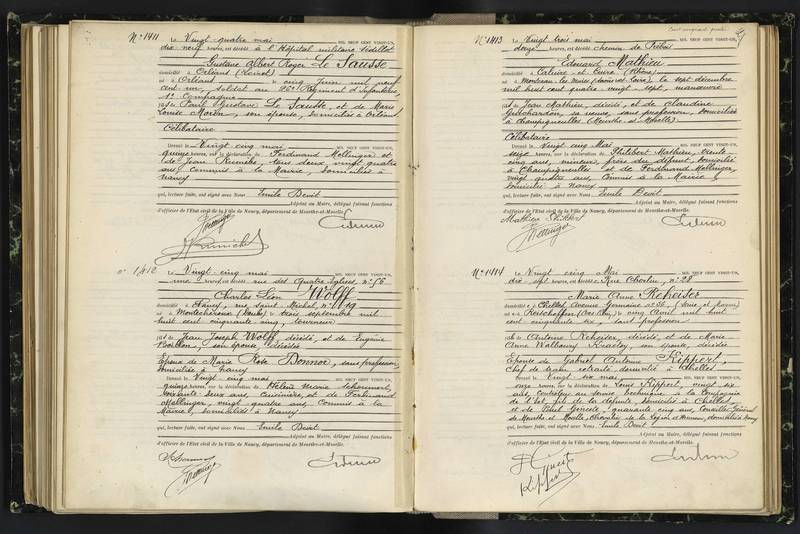 N° 1411
Le Vingt-quatre mai MIL NEUF CENT VINGT-UN,
dix neuf heures, est décédé à l'Hôpital militaire Sédillot
Gustave Albert Roger Le Sausse
domicilié à Orléans (Loiret)
né à Orléans le cinq Juin mil neuf
cent un, soldat au 26e Régiment d'Infanterie,
1e Compagnie
fils de Paul Gustave Le Sausse, et de Marie
Louise Morin, son épouse, domiciliés à Orléans
Célibataire
Dressé le Vingt cinq mai
quinze heures, sur la déclaration de Ferdinand Mellinger et
de Jean, tous deux vingt quatre
ans, Commis à la Mairie, domiciliés à
Nancy
qui, lecture faite, ont signé avec Nous Emile Devit
Adjoint au Maire, délégué faisant fonctions
d'officier de l'Etat civil de la Ville de Nancy, département de Meurthe-et-Moselle.
n° 1412
Le Vingt-cinq mai MIL NEUF CENT VINGT-UN,
une heures, est décédé rue des Quatre Eglises, n° 56
Charles Léon Wolff
domicilié à Nancy, rue Saint-Michel, n° 19
né à Montécheroux (Doubs) le trois septembre mil
huit cent cinquante cinq, tourneur
fils de Jean Joseph Wolff, décédé, et de Eugénie
son épouse, décédée
Epoux de Marie Rose Bonnor, sans profession,
domiciliée à Nancy
Dressé le Vingt-cinq mai
quinze heures, sur la déclaration de Hélène Marie
soixante deux ans, Cuisinière, et de Ferdinand
Mellinger, vingt quatre ans, Commis à la
Mairie, domiciliés à Nancy
qui, lecture faite, ont signé avec Nous Emile Devit
Adjoint au Maire, délégué faisant fonctions
d'officier de l'Etat civil de la Ville de Nancy, département de Meurthe-et-Moselle.
N° 1413
Le Vingt trois mai MIL NEUF CENT VINGT-UN,
douze heures, est décédé chemin de
Edouard Mathieu
domicilié à Caluire et Cuire (Rhône)
né à Montceau les Mines (Saône et Loire), le sept décembre
mil huit cent quatre-vingt-sept, manœuvre
fils de Jean Mathieu, décédé, et de Claudine
sa veuve, sans profession, domiciliée
à Champigneulles (Meurthe et Moselle)
Célibataire
Dressé le Vingt cinq Mai
seize heures, sur la déclaration de Philibert Mathieu, trente
cinq ans, mineur, frère du défunt, domicilié
à Champigneulles et de Ferdinand Mellinger,
vingt quatre ans, Commis à la Mairie,
domicilié à Nancy
qui, lecture faite, ont signé avec Nous Emile Devit
Adjoint au Maire, délégué faisant fonctions
d'officier de l'Etat civil de la Ville de Nancy, département de Meurthe-et-Moselle.
Mathieu
N° 1414
Le Vingt cinq Mai MIL NEUF CENT VINGT-UN,
dix sept heures, est décédée Rue n° 28
Marie Anne Reheiser
domiciliée à Chelles Avenue Germaine n° 26, (Seine et Marne)
née à Reichshoffen (Bas Rhin), le cinq Avril mil huit
cent cinquante six, sans profession
fille de Antoine Reheiser, décédé, et de Marie
Anne Walburge son épouse, décédée
Epouse de Gabriel Antoine Kippert,
Chef de train retraité domicilié à Chelles
Dressé le Vingt six mai
onze heures, sur la déclaration de Louis Kippert, vingt six
ans, Contrôleur au service technique à la Compagnie
de l'Est, fils de la défunte, domicilié à Chelles,
et de quarante cinq ans, Conseiller Général
de Meurthe et Moselle, Chevalier de la Légion d'Honneur, domicilié à Nancy
qui, lecture faite, ont signé avec Nous Emile Devit
Adjoint au Maire, délégué faisant fonctions
d'officier de l'Etat civil de la Ville de Nancy, département de Meurthe-et-Moselle.
Kippert